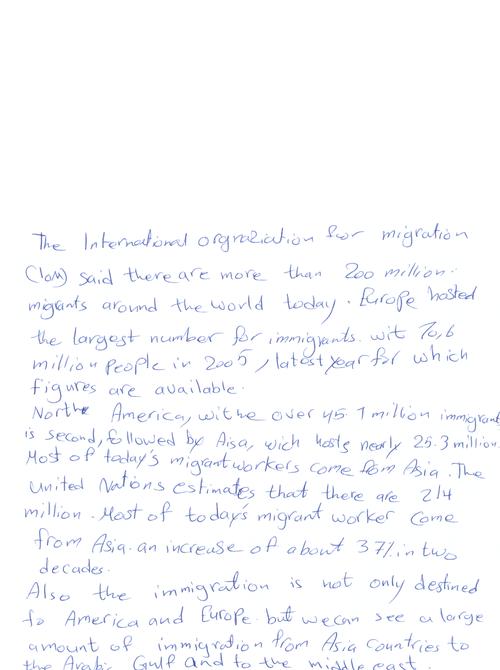 The International orgnaziation for migration
(IOM) said there are more than 200 million.
migrants around the world today. Europe hosted
the largest number for immigrants. wit 70,6
million people in 2005, latest year for which
figures are available.
North America, withe over 45.1 million immigrants
is second, followed by Aisa, wich hosts nearly 25.3 million.
Most of today's migrant workers come from Asia. The
United Nations estimates that there are 214
million. Most of today's migrant worker come
from Asia. an increase of about 37% in two
decades.
Also the immigration is not only destined
to America and Europe. but we can see a large
amount of immigration from Asia countries to
the Arabi Gulf and to the middle east.